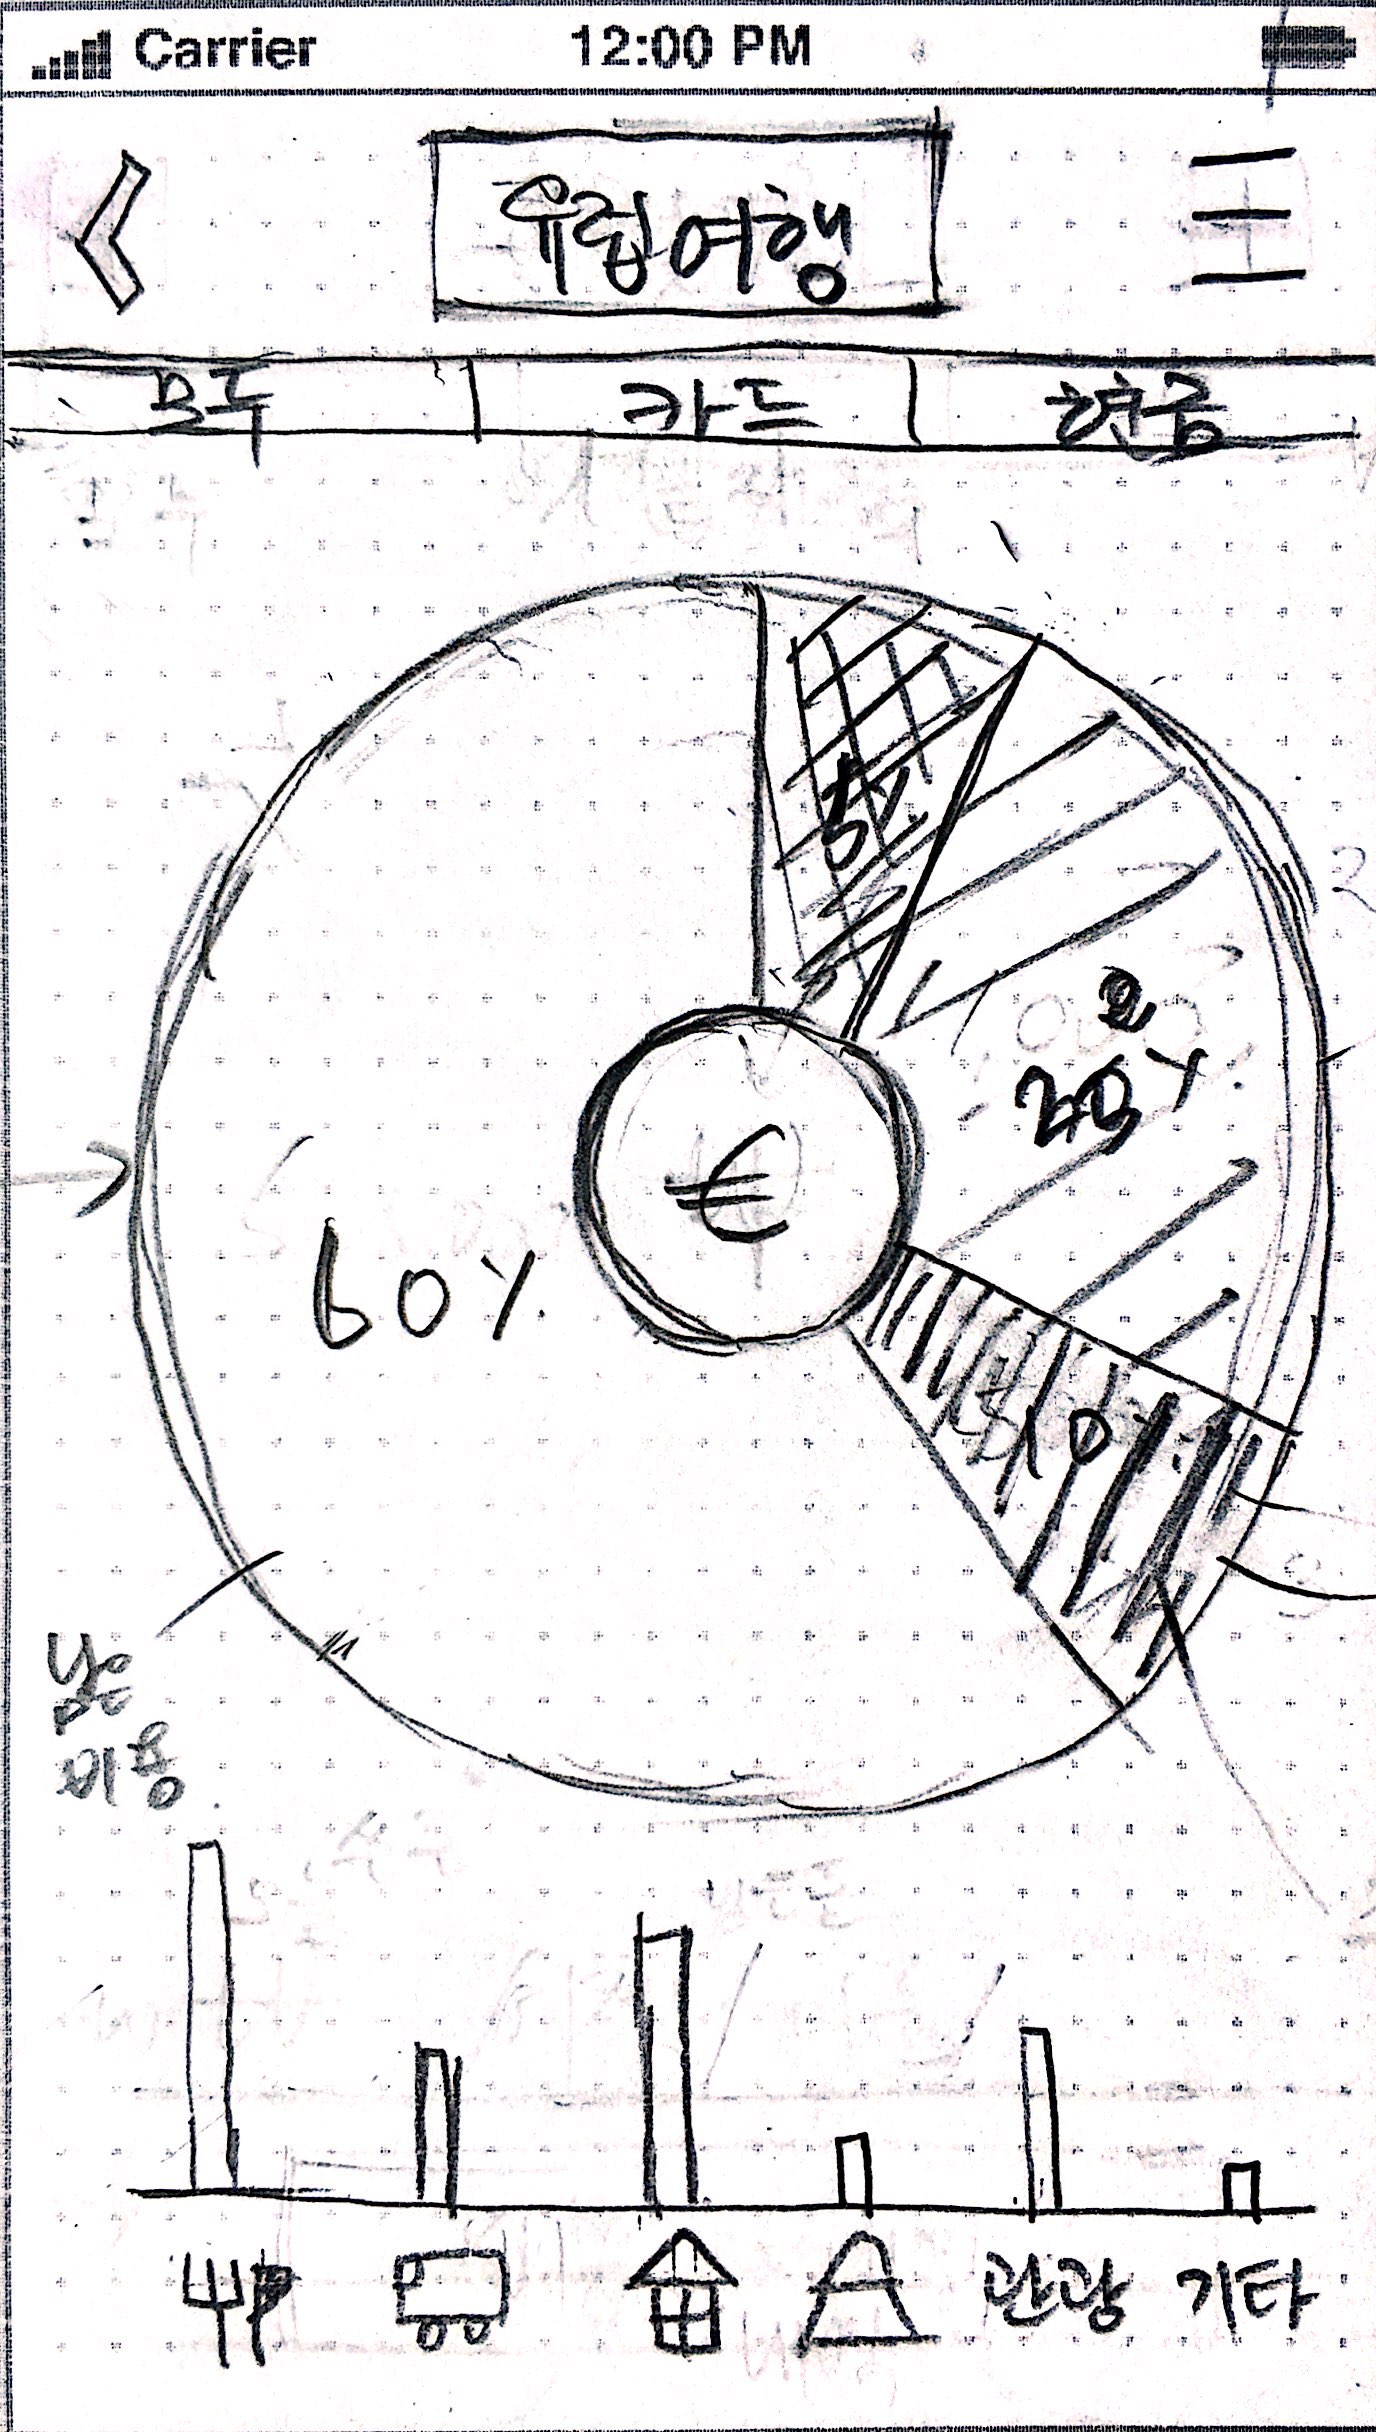 Carrier 12:00 PM
유럽여행
모두 카드 현금
€
60%
10%
남은
비용
관광 기타